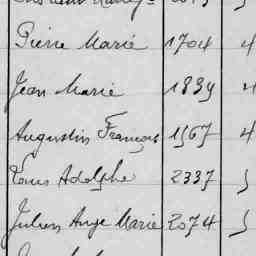 Pierre Marie 1704 4
Jean Marie 1839 4
Augustin François 1567 4
Louis Adolphe 2337 5
Julien Ange Marie 2074 5